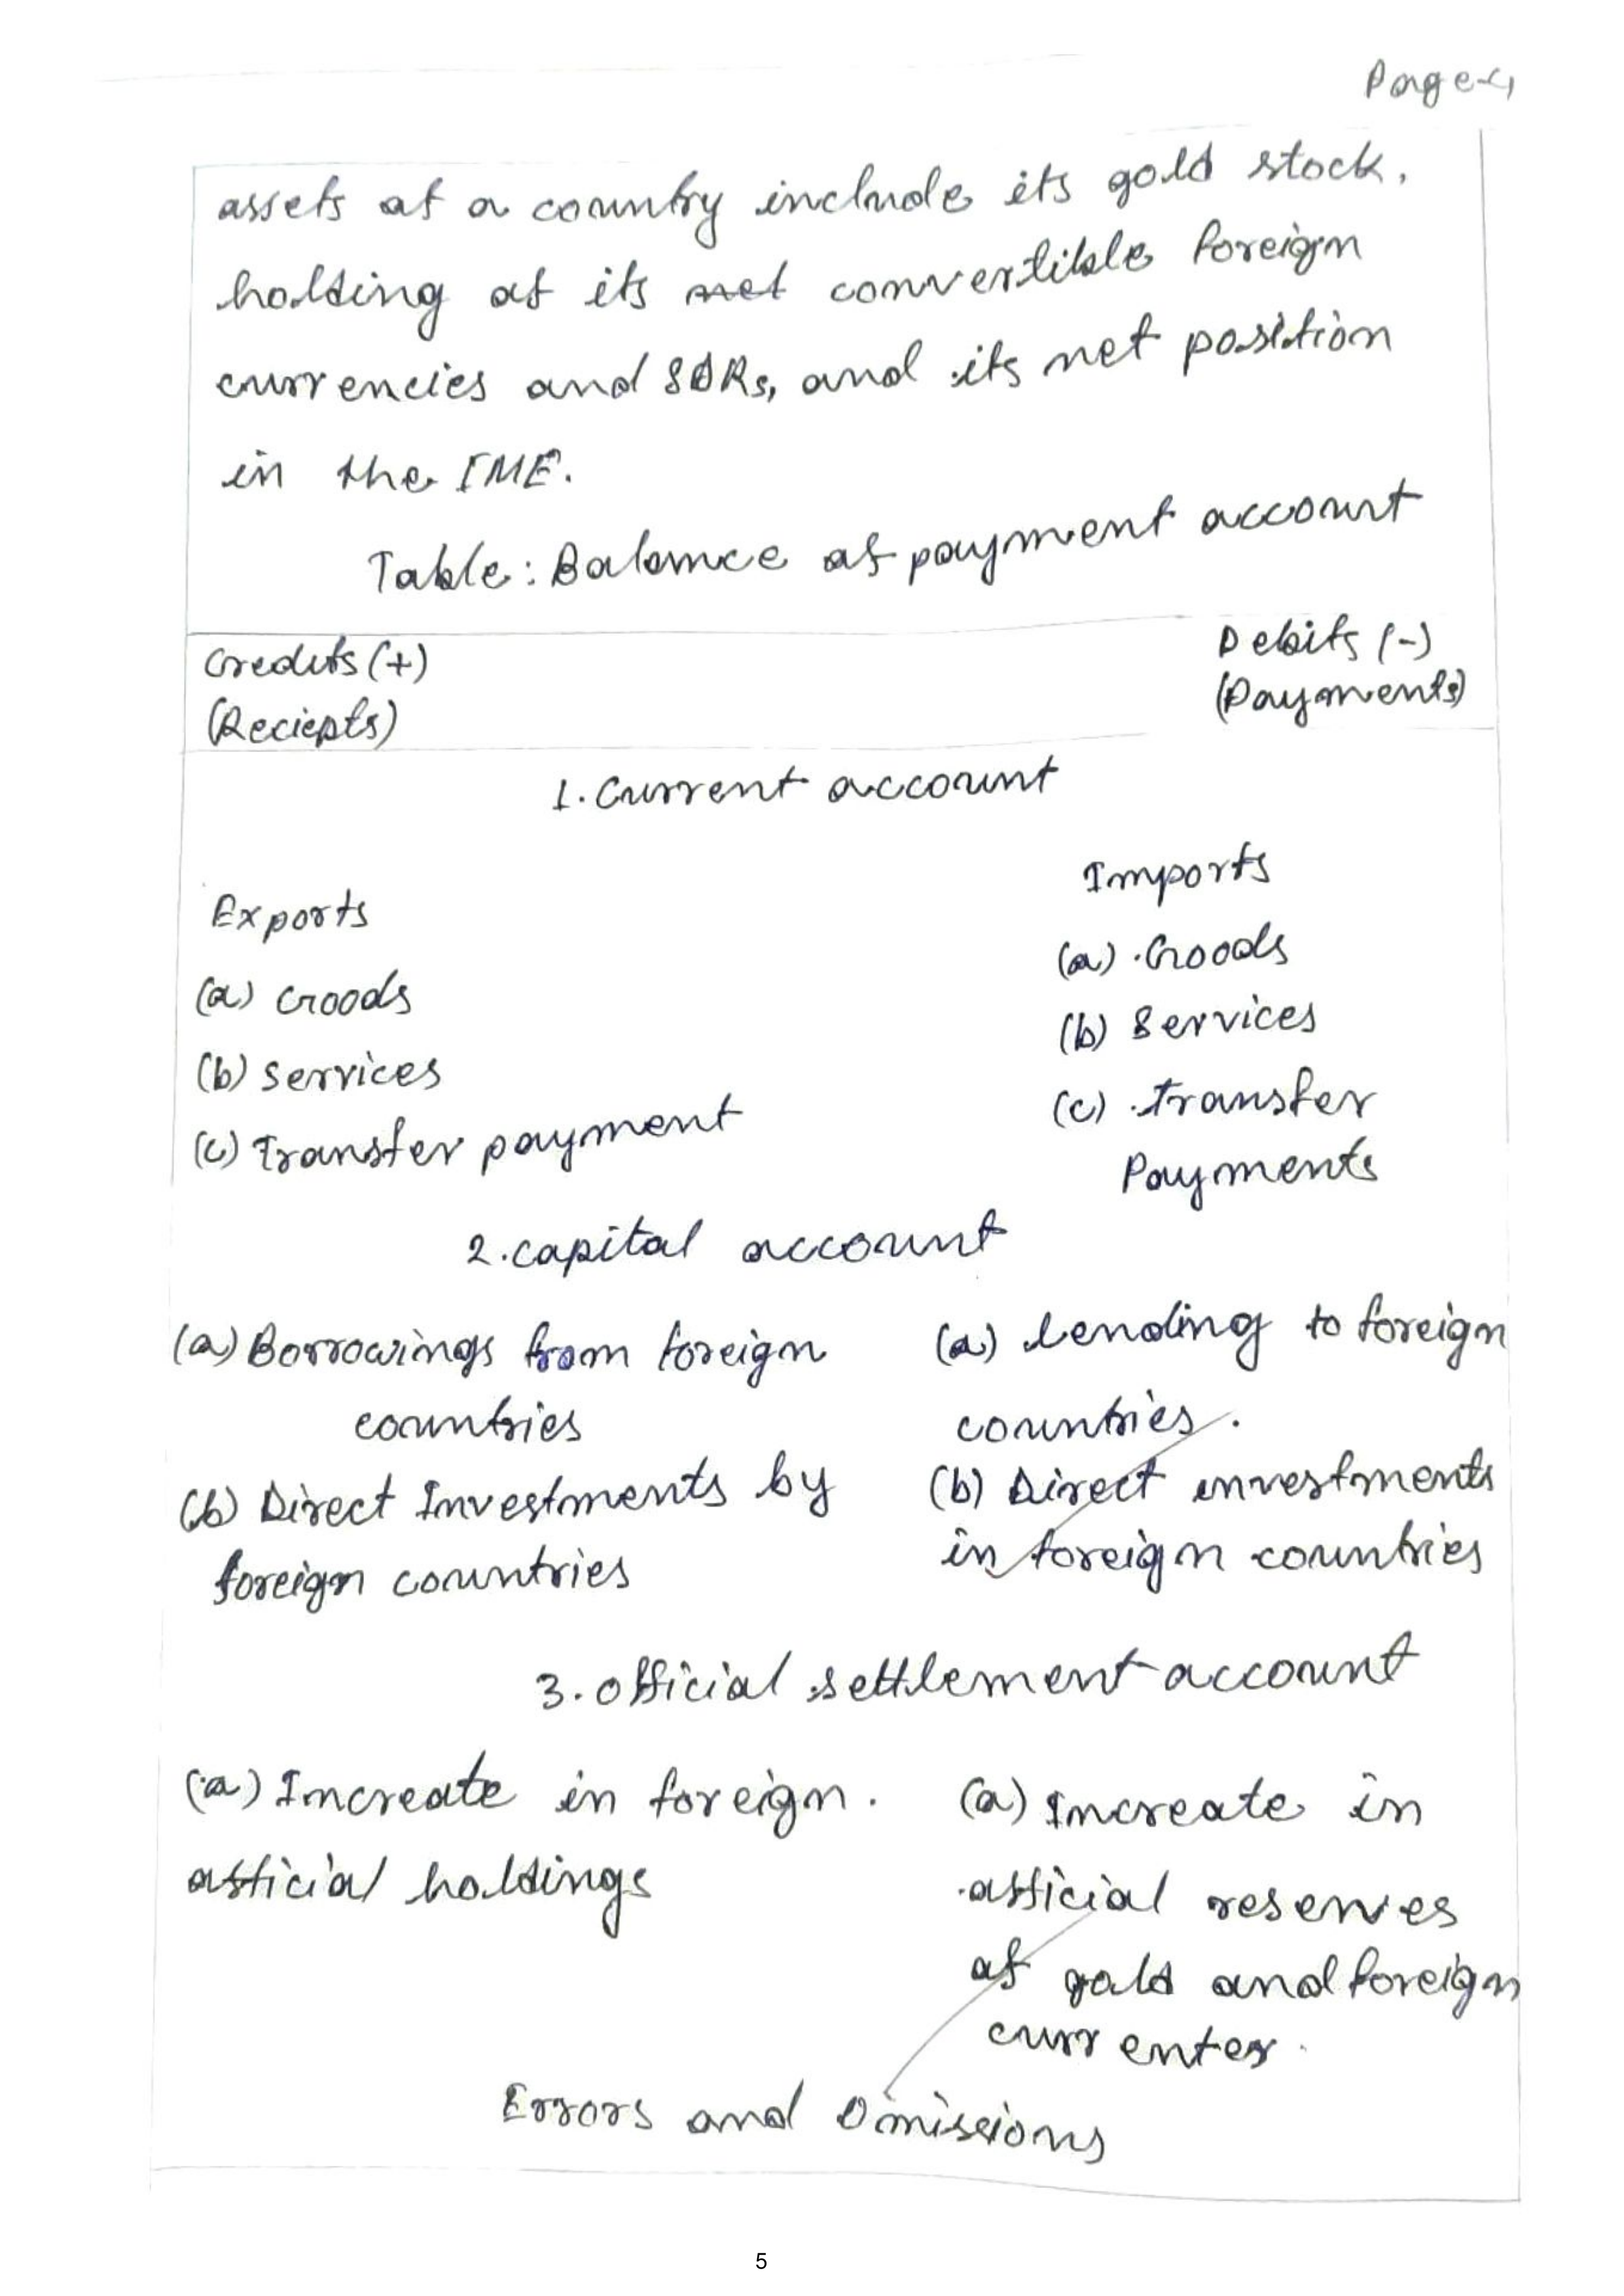 Page-4
assets of a country include its gold stock,
holding of its net convertible foreign
currencies and SDRs, and its net position
in the IMF.
Table: Balance of payment account
Credits (+) Debits (-)
(Reciepts) (Payments)
1. Current account
Exports Imports
(a) Goods (a) Goods
(b) Services (b) Services
(c) Transfer payment (c) Transfer
Payments
2. capital account
(a) Borrowings from foreign (a) Lending to foreign
countries countries.
(b) Direct Investments by (b) Direct investments
foreign countries in foreign countries
3. official settlement account
(a) Increate in foreign. (a) Increate in
official holdings official reserves
of gold and foreign
currenter.
Errors and Omissions
5